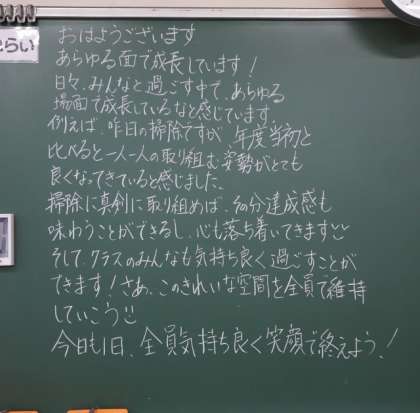 ねらい
おはようございます
あらゆる面で成長しています！
日々、みんなと過ごす中で、あらゆる
場面で成長しているなと感じています。
例えば、昨日の掃除ですが、年度当初と
比べると一人一人の取り組む姿勢がとても
良くなってきていると感じました。
掃除に真剣に取り組めば、その分達成感も
味わうことができるし、心も落ち着いてきます
そして、クラスのみんなも気持ち良く過ごすことが
できます！さあ、このきれいな空間を全員で維持
していこう
今日も1日、全員気持ち良く笑顔で終えよう！